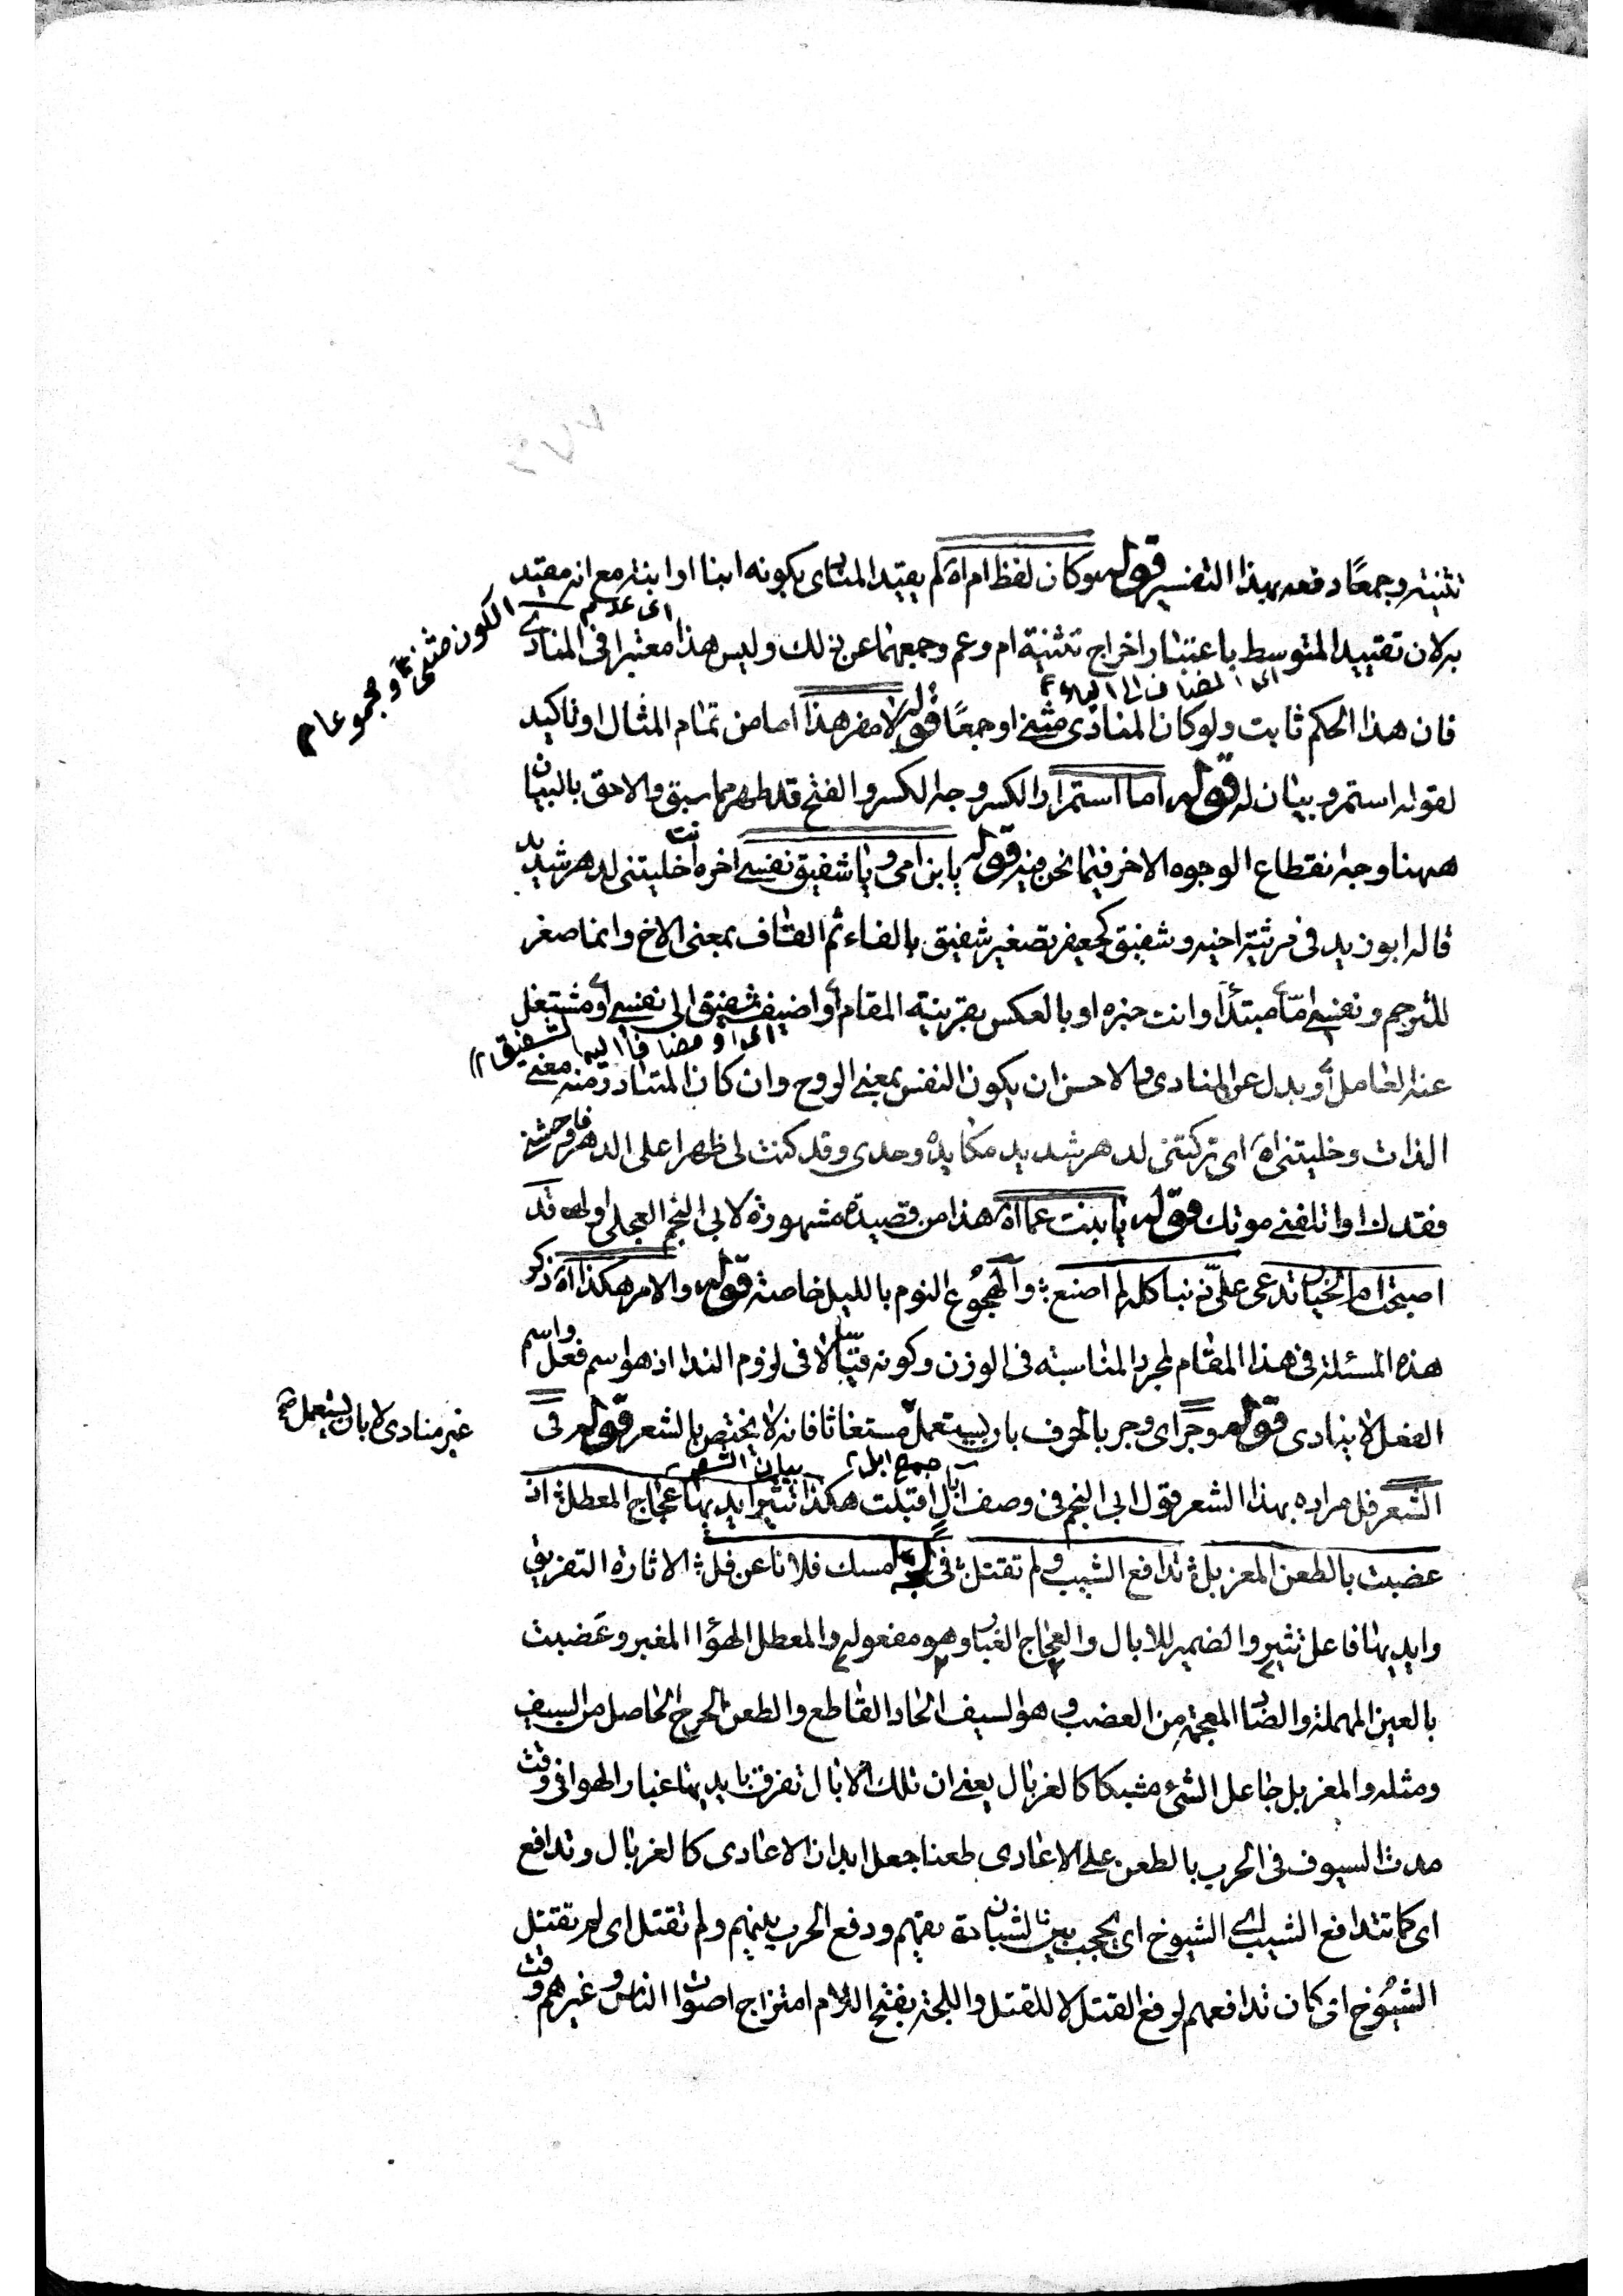 تثنية وجمعًا دفعه بهذا التفسير قوله وكان لفظ ام اه لم يقيد المنادى بكونه ابنا او ابنة مع انه مقيد
به لان تقييد المتوسط باعتبار اخراج تثنية ام وعم وجمعهما عن ذلك وليس هذا معتبرا فى المنادى
اى عدم الكون مثنى او مجموعا م
اى المضاف الى الياء
فان هذا الحكم ثابت ولو كان المنادى مثنى او جمعًا قوله لا مفر هذا اما من تمام المثال او تاكيد
لقوله استمر وبيان له قوله اما استمرار الكسر وجه الكسر والفتح قد ظهر مما سبق والاحق بالبيان
ههنا وجه انقطاع الوجوه الاخر فيما نحن فيه قوله يا بن امى ويا شقيق نفسى اخره انت خليتنى لدهر شديد
قاله ابو زيد فى مرثية اخيه وشقيق كجعيفر تصغير شقيق بالفاء ثم القاف بمعنى الاخ وانما صغر
للترحم ونفسى امّا مبتدأ وانت خبره او بالعكس بقرينة المقام او اضيف شقيق الى نفسى او مشتغل
اى او مضافا اليها لشقيق م
عنه العامل او بدل عن المنادى والاحسن ان يكون النفس بمعنى الروح وان كان المتبادر منه معنى
الذات وخليتنى اه اى تركتنى لدهر شديد مكايده وحدى وقد كنت لى ظهرا على الدهر فاوحشنى
فقدك او اتلفنى موتك قوله يا بنت عما اه هذا من قصيدة مشهورة لابى النجم العجلى اوله قد
اصبحت ام الخيار تدعى على ذنبا كله لم اصنع والهجوع النوم بالليل خاصة قوله والامر هكذا اه ذكر
هذه المسئلة فى هذا المقام لمجرد المناسبة فى الوزن وكونه قياسا لا فى لزوم الندا اذ هو اسم فعل واسم
الفعل لا ينادى قوله وجر اى وجر بالحرف بان يستعمل مستغاثا فانه لا يختص بالشعر قوله فى
غير منادى لا بان يستعمل صح
جمع ابل
بيان الشعر
الشعر فل مراده بهذا الشعر قول ابى النجم فى وصف ابال اقبلت هكذا تثير ايديها عجاج المعطل اذ
عضبت بالطعن المغربل تدافع الشيب ولم تقتل فى لجة امسك فلانا عن فل الاثارة التفريق
وايديها فاعل تثير والضمير للابال والعجاج الغبار وهو مفعوله والمعطل الهواء المغبر وعضبت
بالعين المهملة والضاد المعجمة من العضب وهو السيف الحاد القاطع والطعن الجرح الحاصل من السيف
ومثله والمغربل جاعل الشئ مشبكا كالغربال يعنى ان تلك الابال تفرق بايديها غبار الهوا فى وقت
مدت السيوف فى الحرب بالطعن على الاعادى طعنا جعل ابدان الاعادى كالغربال وتدافع
اى كما تتدافع الشيب اى الشيوخ اى يحجب بين الشبان ودفع الحرب بينهم ولم تقتل اى لم تقتتل
الشيوخ اى كان تدافعهم لرفع القتل لا للقتل واللجة بفتح اللام امتزاج اصوات الناس وغيرهم وقت